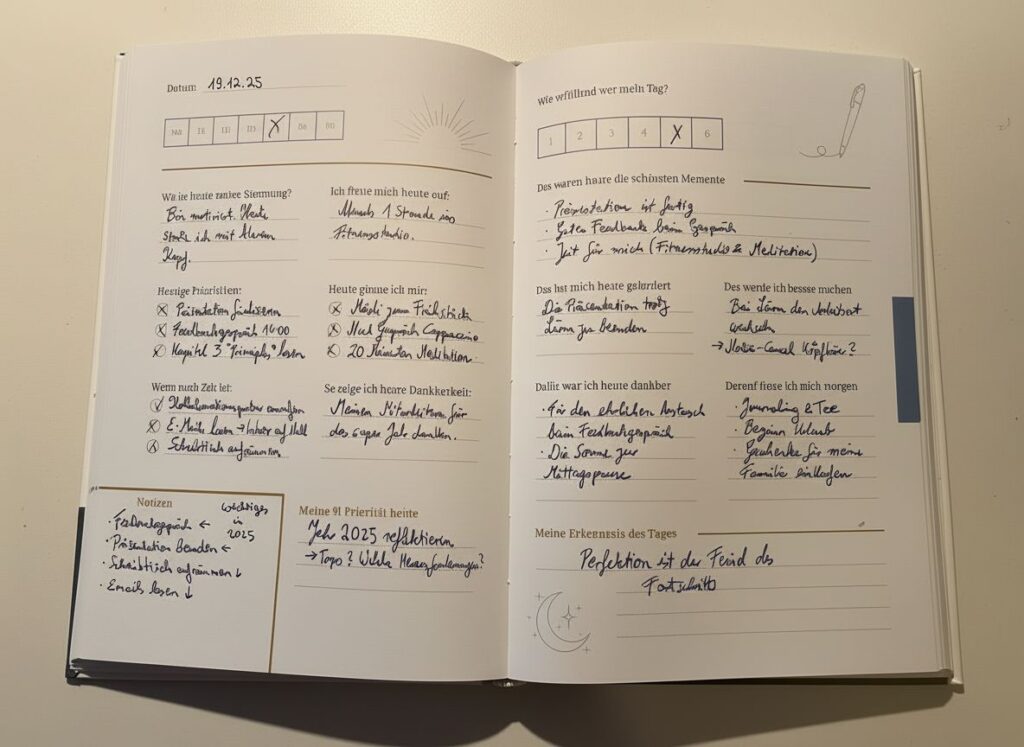 Datum: 19.12.25
X
Wie erfüllend wer mein Tag?
1 2 3 4 X 6
Wie ist heute meine Stimmung?
Bin motiviert. Heute
starte ich mit klarem
Kopf.
Ich freue mich heute auf:
Abends 1 Stunde ins
Fitnessstudio.
Heutige Prioritäten:
Präsentation finalisieren
Feedbackgespräch 14:00
Kapitel 3 "Principles" lesen
Heute gönne ich mir:
Müsli zum Frühstück
Nach Gespräch Cappuccino
20 Minuten Meditation
Wenn noch Zeit ist:
E-Mails lesen → Inbox auf Null
Schreibtisch aufräumen
So zeige ich heute Dankbarkeit:
Meinen Mitarbeitern für
das Jahr danken.
Notizen
wichtiges
in
2025
· Feedbackgespräch ←
· Präsentation beenden ←
· Schreibtisch aufräumen ↓
· Emails lesen ↓
Meine #1 Priorität heute
Jahr 2025 reflektieren
→ Tops? Welche Herausforderungen?
Das waren heute die schönsten Momente
· Präsentation ist fertig
· Gutes Feedback beim Gespräch
· Zeit für mich (Fitnessstudio & Meditation)
Das hat mich heute gefordert
Die Präsentation trotz
Lärm zu beenden
Das werde ich besser machen
Bei Lärm den Arbeitsort
wechseln
→ Noise-Cancel Kopfhörer?
Dafür war ich heute dankbar
· Für den ehrlichen Austausch
beim Feedbackgespräch
· Die Sonne zur
Mittagspause
Darauf freue ich mich morgen
· Journaling & Tee
· Beginn Urlaub
· Geschenke für meine
Familie einkaufen
Meine Erkenntnis des Tages
Perfektion ist der Feind des
Fortschritts